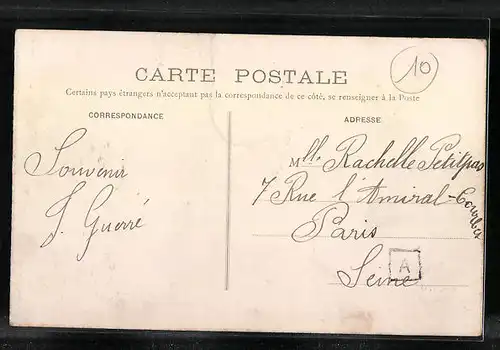 10
CARTE POSTALE
Certains pays étrangers n'acceptant pas la correspondance de ce côté, se renseigner à la Poste
CORRESPONDANCE
ADRESSE
Souvenir
J. Guerré
Mlle. Rachelle Petitpas
7 Rue l'Amiral-Courbet
Paris
Seine
A